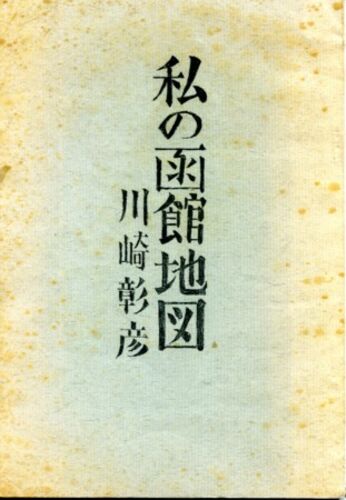 私の函館地図
川崎彰彦